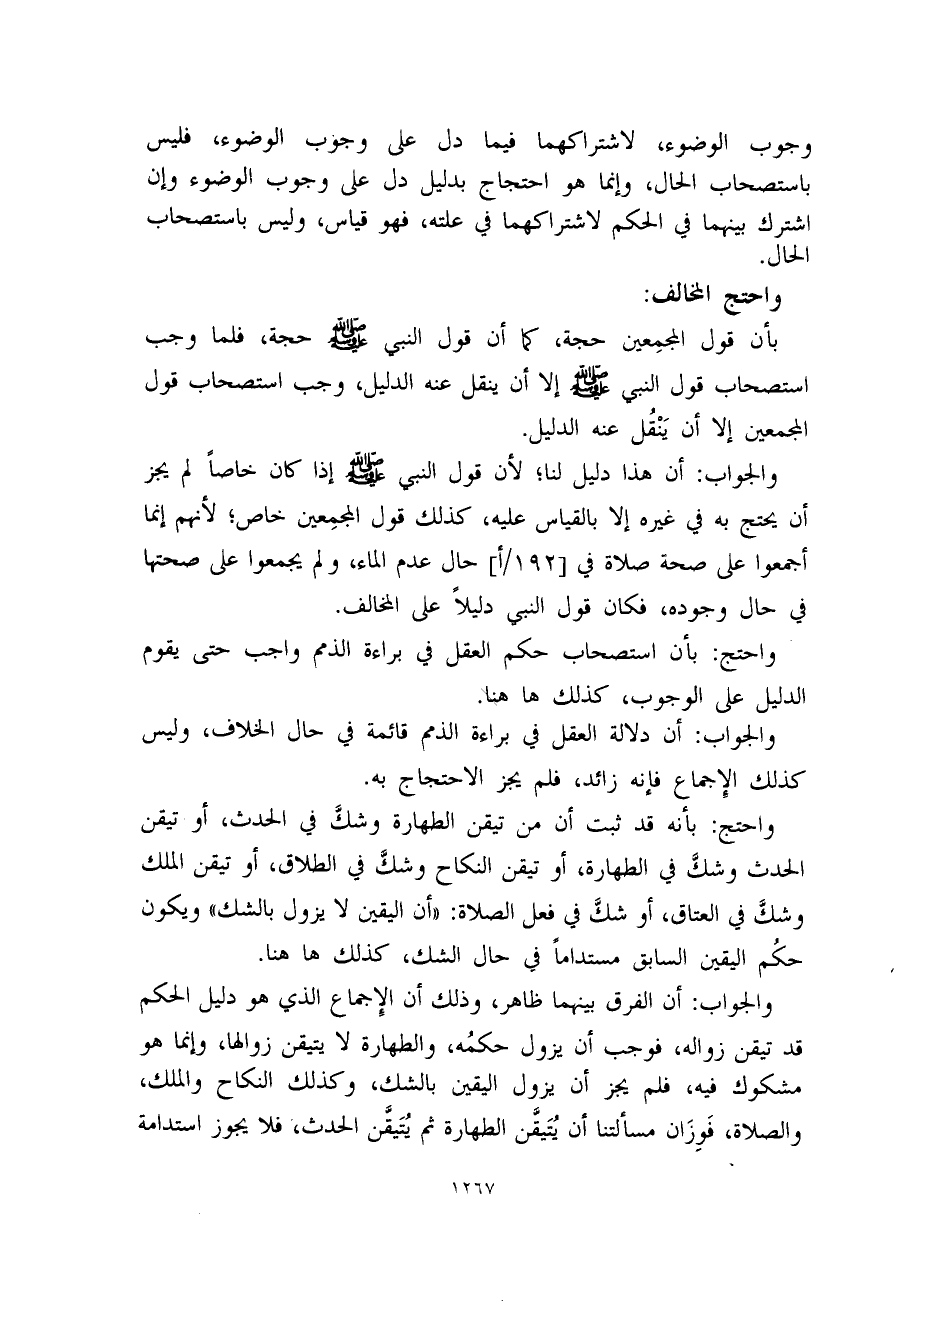 وجوب الوضوء، لاشتراكهما فيما دل على وجوب الوضوء، فليس
باستصحاب الحال، وإنما هو احتجاج بدليل دل على وجوب الوضوء وإن
اشترك بينهما في الحكم لاشتراكهما في علته، فهو قياس، وليس باستصحاب
الحال.
واحتج المخالف:
بأن قول المجمِعين حجة، كما أن قول النبي ﷺ حجة، فلما وجب
استصحاب قول النبي ﷺ إلا أن ينقل عنه الدليل، وجب استصحاب قول
المجمعين إلا أن يَنْقُل عنه الدليل.
والجواب: أن هذا دليل لنا؛ لأن قول النبي ﷺ إذا كان خاصاً لم يجز
أن يحتج به في غيره إلا بالقياس عليه، كذلك قول المجمِعين خاص؛ لأنهم إنما
أجمعوا على صحة صلاة في [١٩٢/أ] حال عدم الماء، ولم يجمعوا على صحتها
في حال وجوده، فكان قول النبي دليلاً على المخالف.
واحتج: بأن استصحاب حكم العقل في براءة الذمم واجب حتى يقوم
الدليل على الوجوب، كذلك ها هنا.
والجواب: أن دلالة العقل في براءة الذمم قائمة في حال الخلاف، وليس
كذلك الإجماع فإنه زائد، فلم يجز الاحتجاج به.
واحتج: بأنه قد ثبت أن من تيقن الطهارة وشكَّ في الحدث، أو تيقن
الحدث وشكَّ في الطهارة، أو تيقن النكاح وشكَّ في الطلاق، أو تيقن الملك
وشكَّ في العتاق، أو شكَّ في فعل الصلاة: «أن اليقين لا يزول بالشك» ويكون
حكُم اليقين السابق مستداماً في حال الشك، كذلك ها هنا.
والجواب: أن الفرق بينهما ظاهر، وذلك أن الإجماع الذي هو دليل الحكم
قد تيقن زواله، فوجب أن يزول حكمُه، والطهارة لا يتيقن زوالها، وإنما هو
مشكوك فيه، فلم يجز أن يزول اليقين بالشك، وكذلك النكاح والملك،
والصلاة، فَوِزَان مسألتنا أن يُتَيقَّن الطهارة ثم يُتَيقَّن الحدث، فلا يجوز استدامة
١٢٦٧